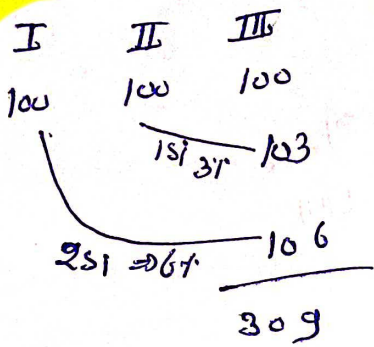 I II III
100 100 100
1SI 3% 103
2SI ⇒ 6% 106
309